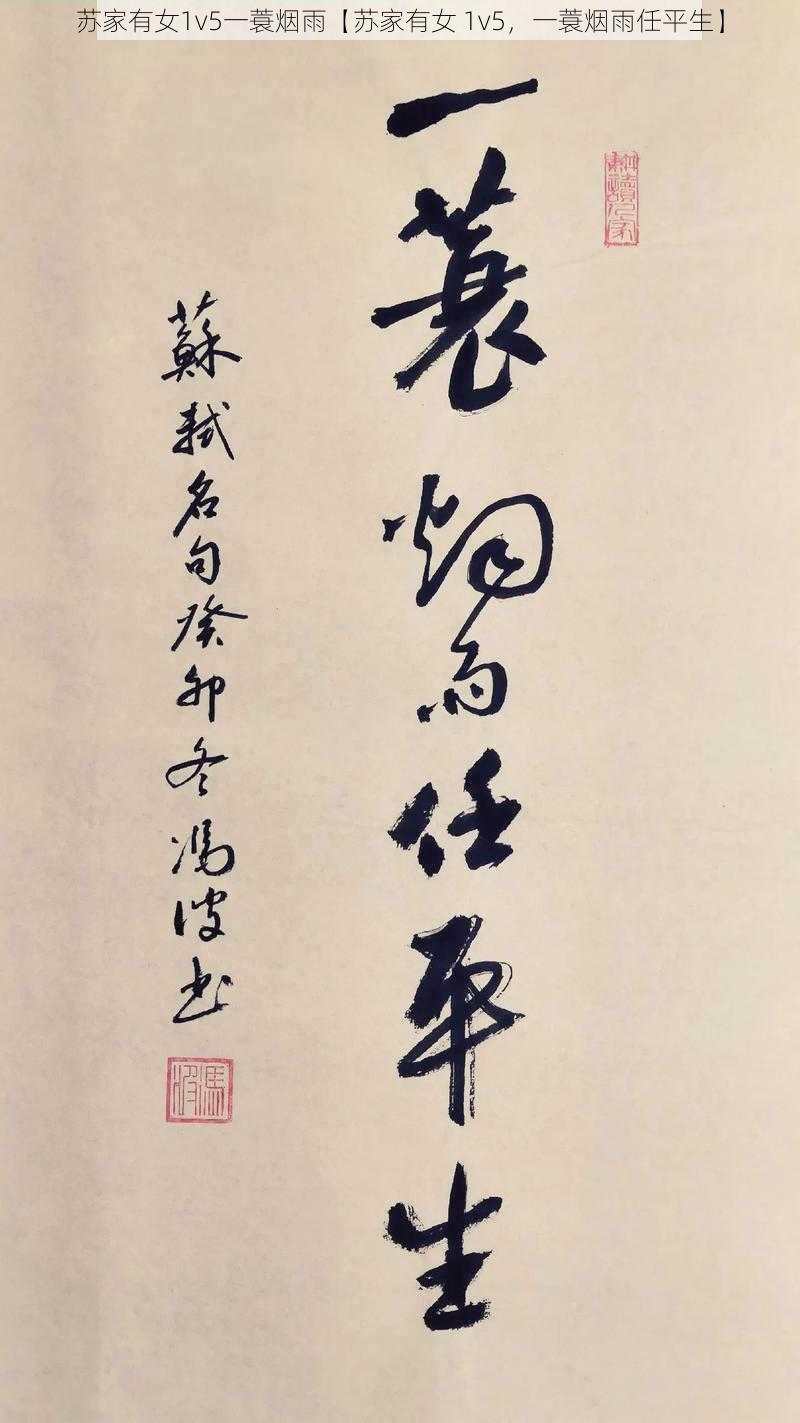 苏家有女1v5一蓑烟雨【苏家有女 1v5，一蓑烟雨任平生】
耕讀人家
一蓑烟雨任平生
蘇軾名句癸卯冬馮波书
馮波